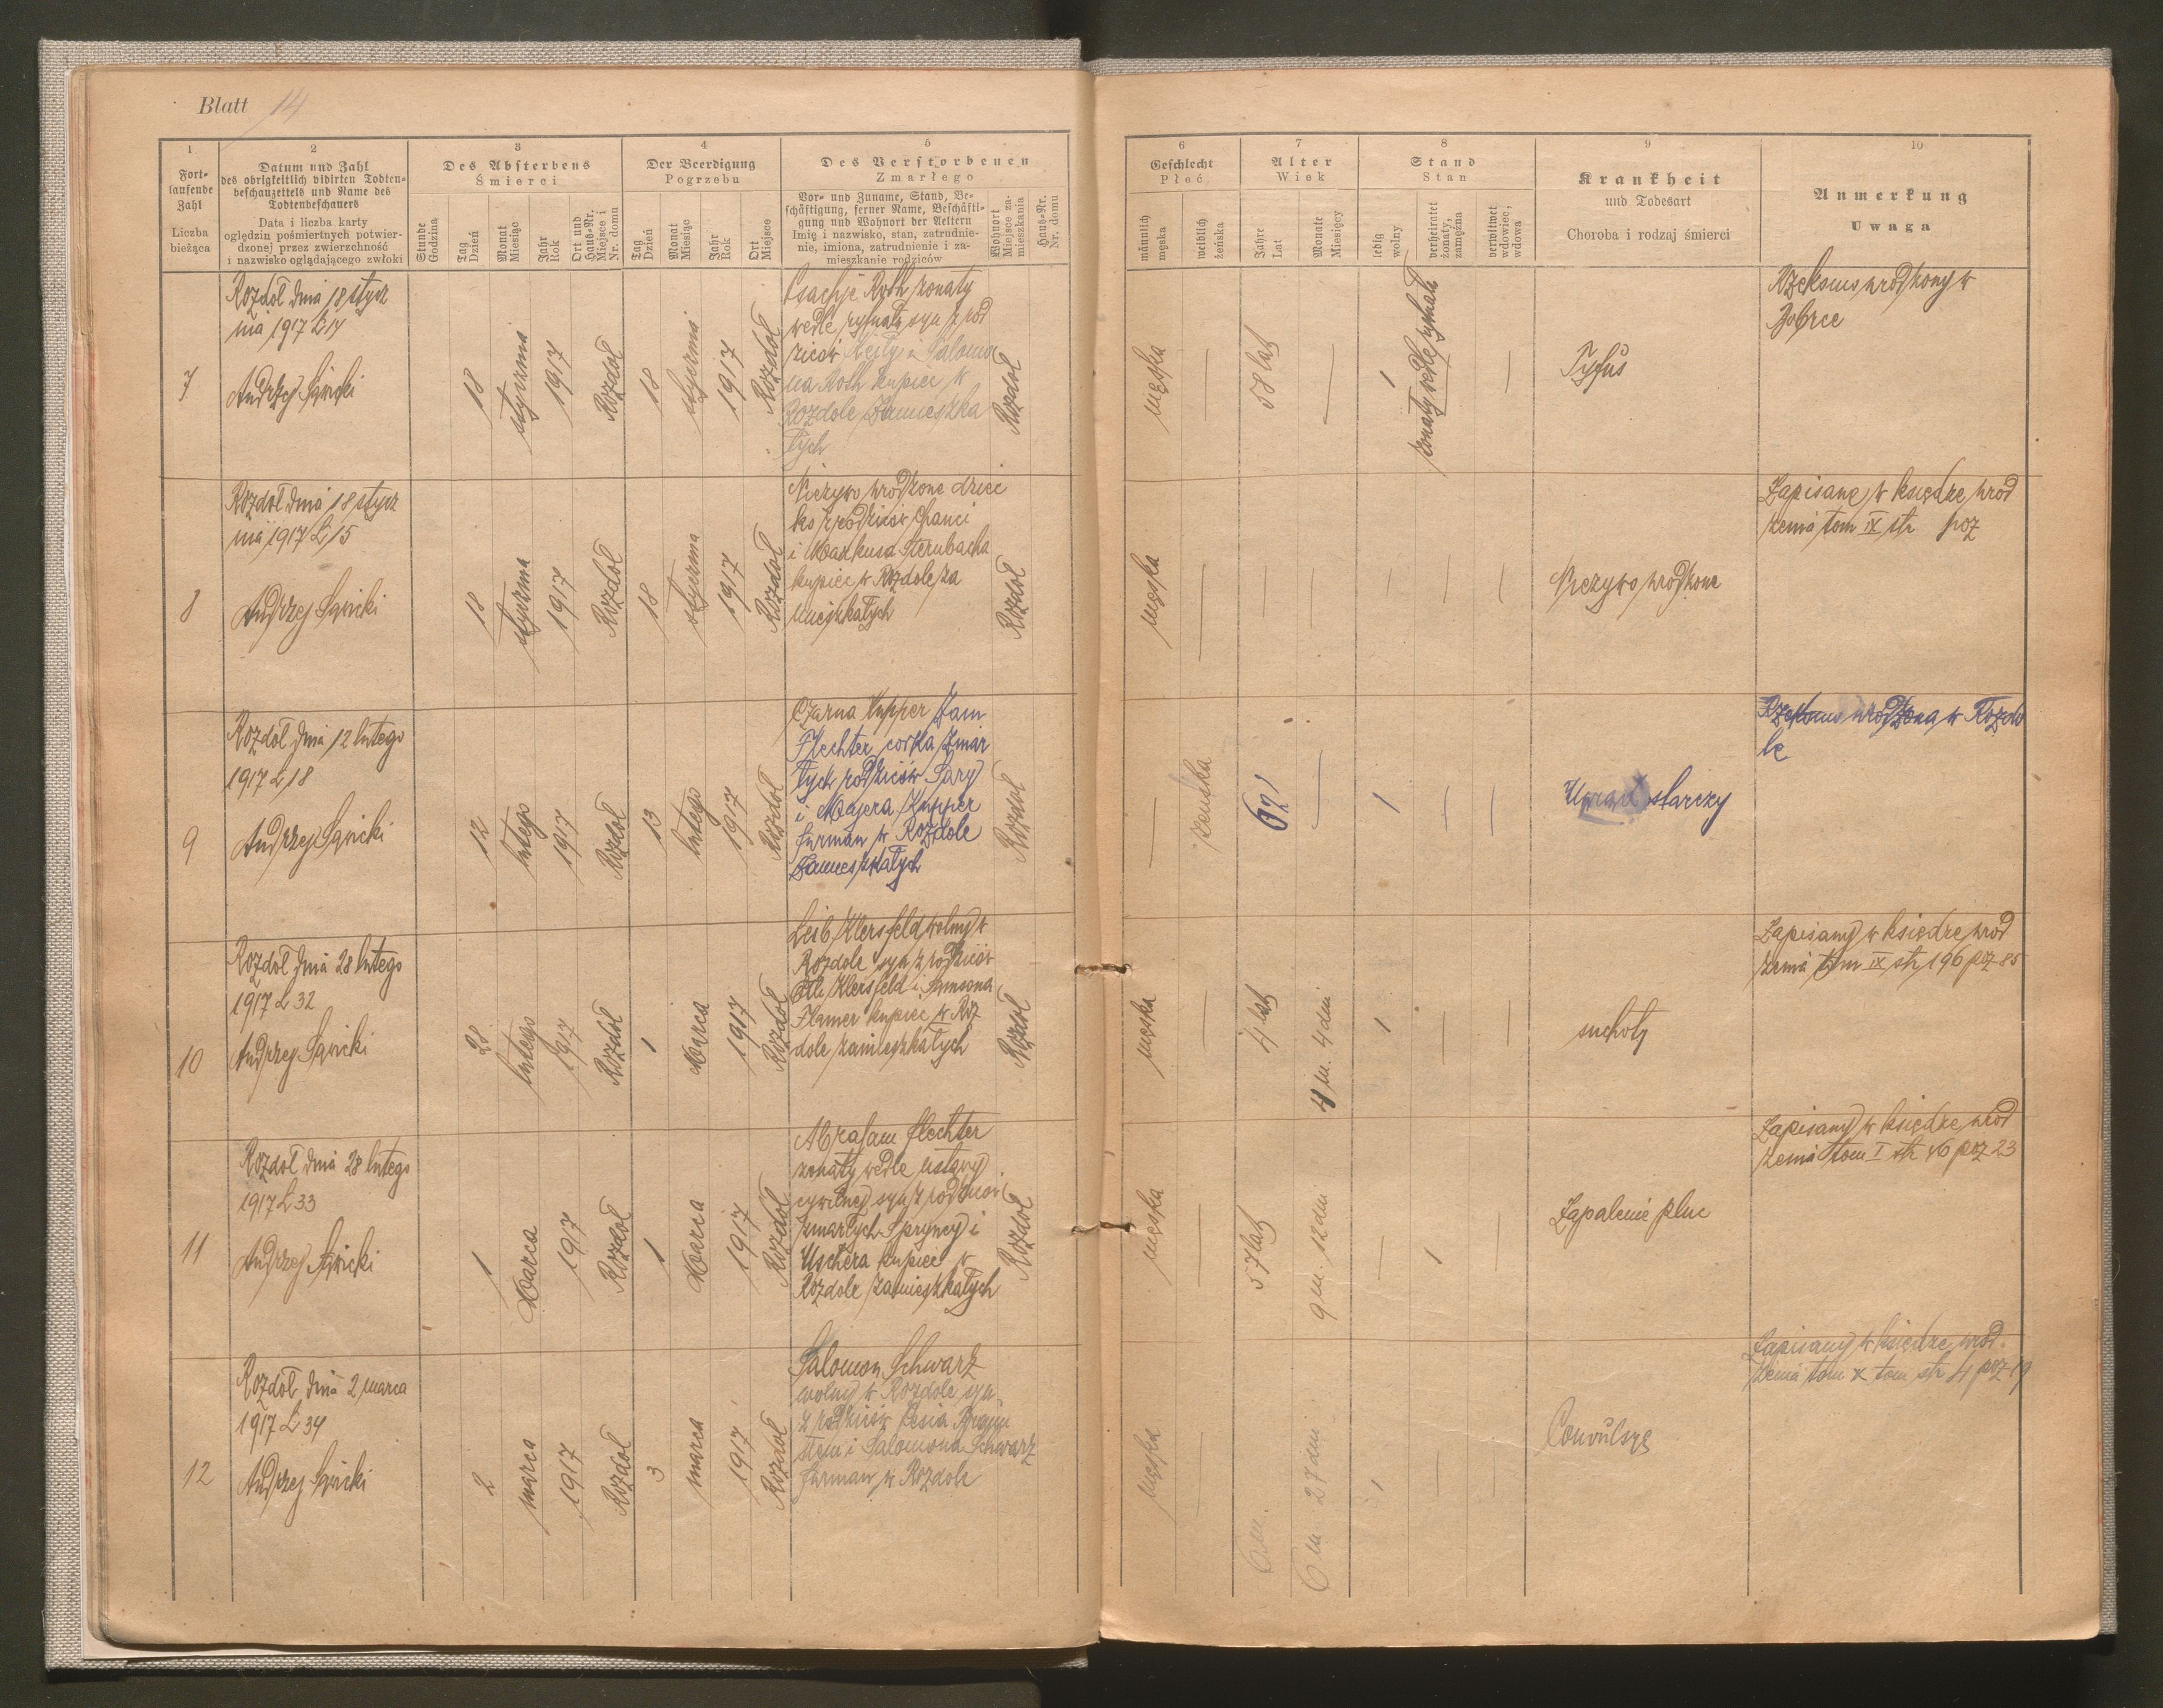 Blatt 14
1
Fort-
laufende
Zahl
Liczba
bieżąca
2
Datum und Zahl
des obrigkeitlich vidirten Todten-
beschauzettels und Name des
Todtenbeschauers
Data i liczba karty
oględzin pośmiertnych potwier-
dzonej przez zwierzchność
i nazwisko oglądającego zwłoki
3
Des Absterbens
Śmierci
Stunde
Godzina
Tag
Dzień
Monat
Miesiąc
Jahr
Rok
Ort und
Haus-Nr.
Miejsce i
Nr. domu
4
Der Beerdigung
Pogrzebu
Tag
Dzień
Monat
Miesiąc
Jahr
Rok
Ort
Miejsce
5
Des Verstorbenen
Zmarłego
Vor- und Zuname, Stand, Be-
schäftigung, ferner Name, Beschäfti-
gung und Wohnort der Aeltern
Imię i nazwisko, stan, zatrudnie-
nie, imiona, zatrudnienie i za-
mieszkanie rodziców
Wohnort
Miejsce za-
mieszkania
Haus-Nr.
Nr. domu
6
Geschlecht
Płeć
männlich
męska
weiblich
żeńska
7
Alter
Wiek
Jahre
Lat
Monate
Miesięcy
8
Stand
Stan
ledig
wolny
verheiratet
żonaty,
zamężna
verwitwet
wdowiec,
wdowa
9
Krankheit
und Todesart
Choroba i rodzaj śmierci
10
Anmerkung
Uwaga
7
Rozdół dnia 18 stycz
nia 1917 L 14
Andrzej Sawicki
18
stycznia
1917
Rozdół
18
stycznia
1917
Rozdół
Roth żonaty
wedle rytuału syn z rod
ziców i Salomo
na Roth kupiec w
Rozdole zamieszka
łych
Rozdół
męska
58 lat
1
żonaty wedle rytuału
Tyfus
urodzony w
8
Rozdół dnia 18 stycz
nia 1917 L 15
Andrzej Sawicki
18
stycznia
1917
Rozdół
18
stycznia
1917
Rozdół
Nieżywo urodzone dziec
ko z rodziców Chanci
i Markusa Sternbacha
kupiec w Rozdole za
mieszkałych
Rozdół
męska
Nieżywo urodzone
Zapisane w księdze urod
zenia tom IX str poz
9
Rozdół dnia 12 lutego
1917 L 18
Andrzej Sawicki
12
lutego
1917
Rozdół
13
lutego
1917
Rozdół
Czarna Kupper zam
Flechter corka zmar
łych rodziców Sary
i Majera Kupper
furman w Rozdole
zamieszkałych
Rozdół
żeńska
67
1
Uwiąd starczy
urodzona w Rozdo
le
10
Rozdół dnia 28 lutego
1917 L 32
Andrzej Sawicki
28
lutego
1917
Rozdół
1
Marca
1917
Rozdół
Leib Klersfeld wolny w
Rozdole syn z rodziców
Klersfeld i Samsona
Flamer kupiec w Roz
dole zamieszkałych
Rozdół
męska
4 lat
4 m. 4 dni
1
suchoty
Zapisany w księdze urod
zenia tom IX str 196 poz 85
11
Rozdół dnia 28 lutego
1917 L 33
Andrzej Sawicki
1
Marca
1917
Rozdół
1
Marca
1917
Rozdół
Abraham Flechter
żonaty wedle ustawy
cywilnej syn z rodziców
zmarłych Spryncy i
Uschera kupiec w
Rozdole zamieszkałych
Rozdół
męska
57 lat
9 m. 12 dni
1
Zapalenie płuc
Zapisany w księdze urod
zenia tom I str 46 poz 23
12
Rozdół dnia 2 marca
1917 L 34
Andrzej Sawicki
2
marca
1917
Rozdół
3
marca
1917
Rozdół
Salomon Schwarz
wolny w Rozdole syn
z rodziców Pesia
i Salomona Schwarz
furman w Rozdole
męska
6 m.
6 m 27 dni
1
Convulsye
Zapisany w księdze urod
zenia tom X tom str 4 poz 19